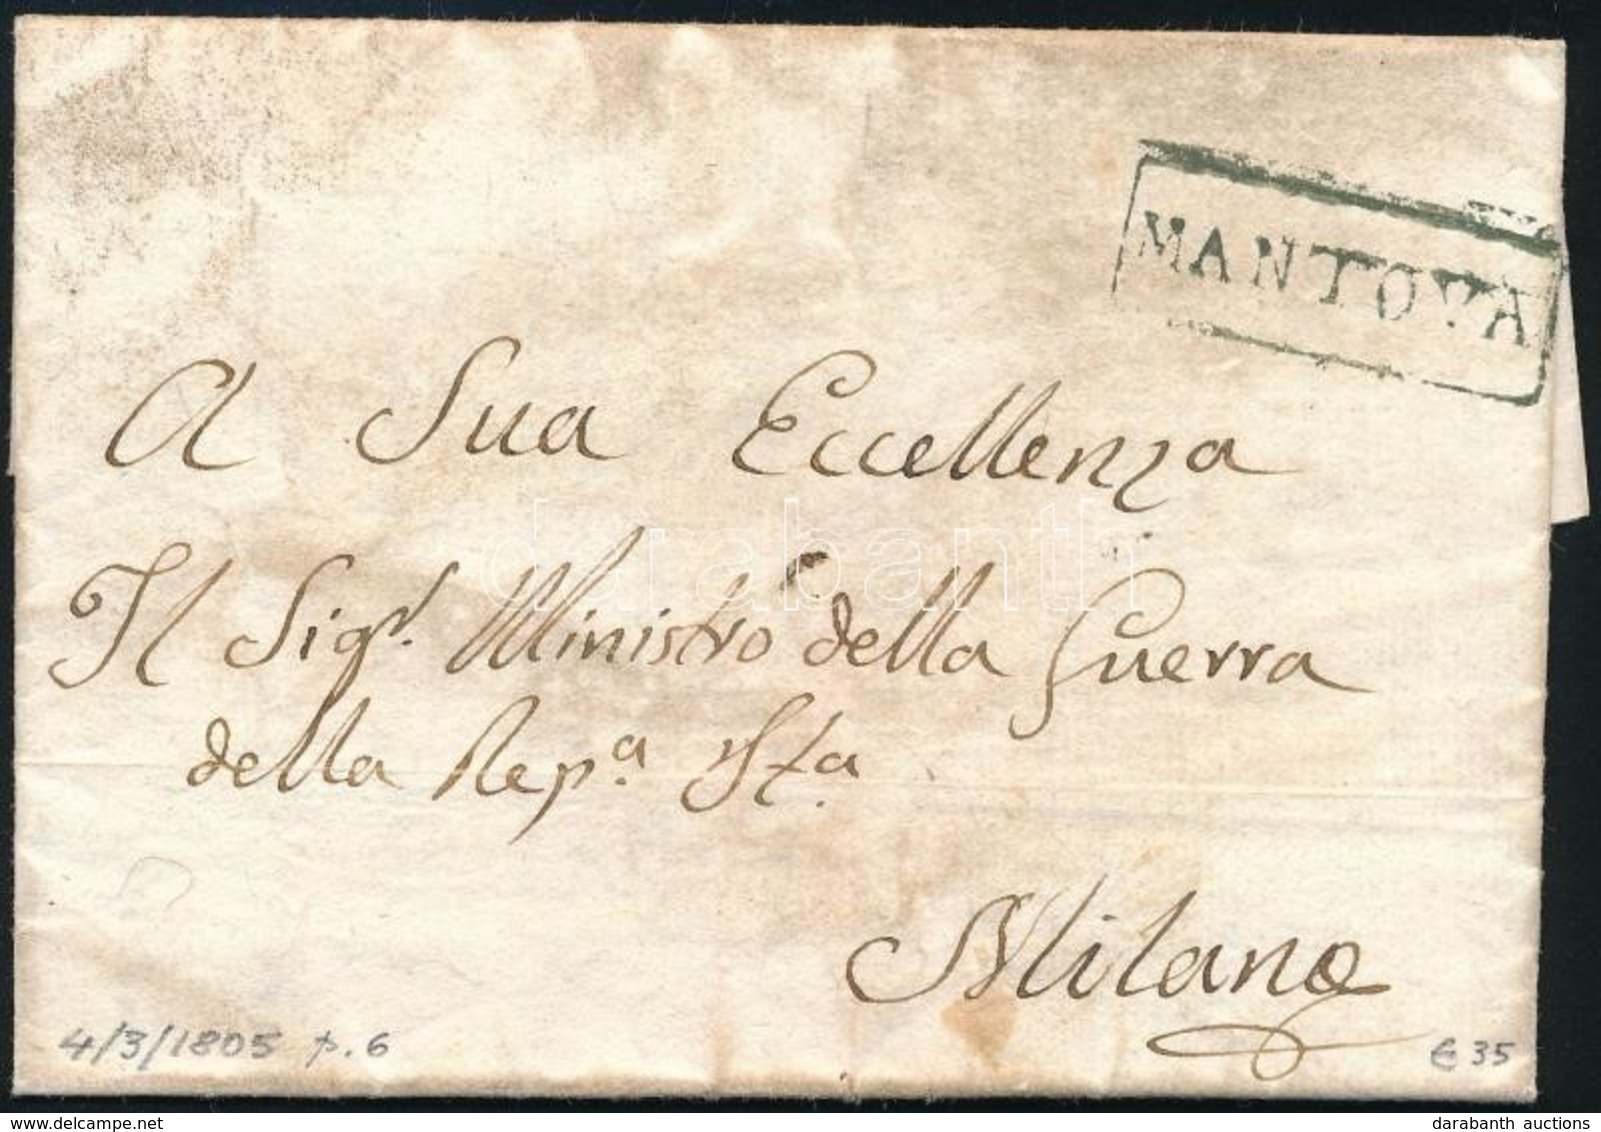 MANTOVA
A Sua Eccellenza
Il Sigr. Ministro della Guerra
della Repa. Ita.
Milano
4/3/1805 p. 6
€ 35
darabanth
delcampe.net
darabanth auctions